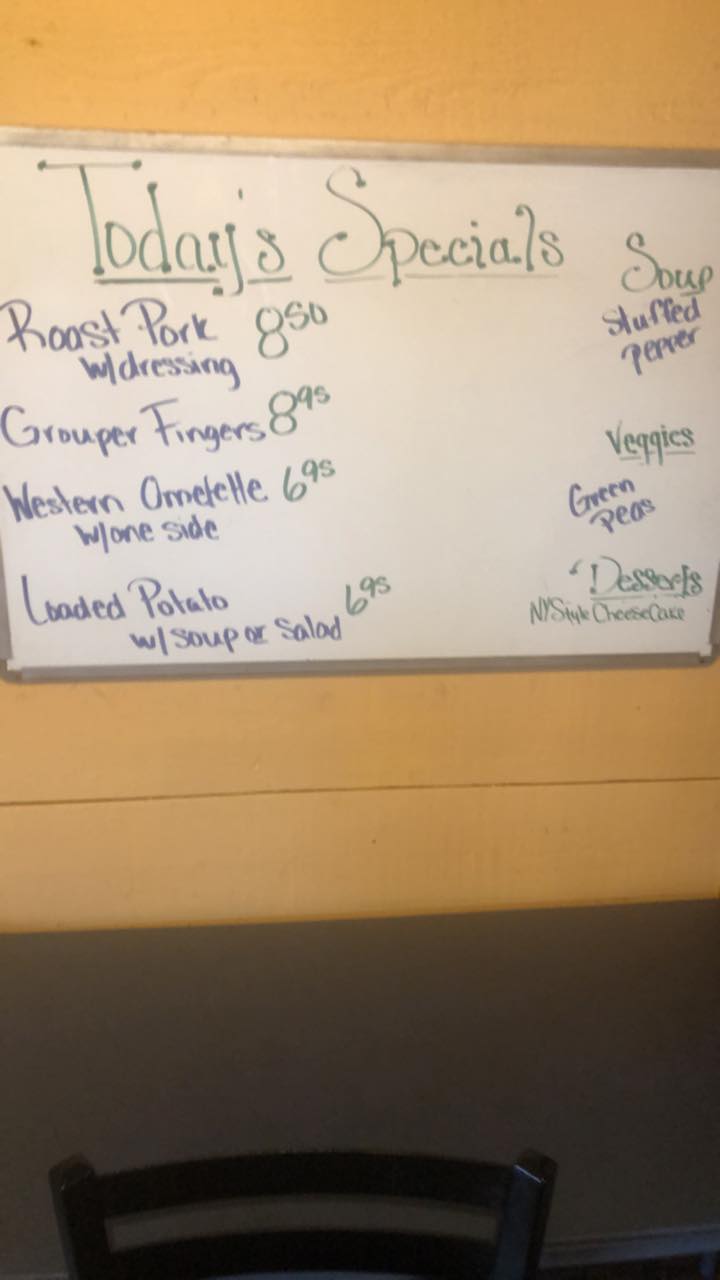 Today's Specials
Roast Pork 8⁵⁰
w/dressing
Grouper Fingers 8⁹⁵
Western Omelette 6⁹⁵
w/one side
Loaded Potato 6⁹⁵
w/soup or Salad
Soup
Stuffed
Pepper
Veggies
Green
Peas
Desserts
NY Style CheeseCake